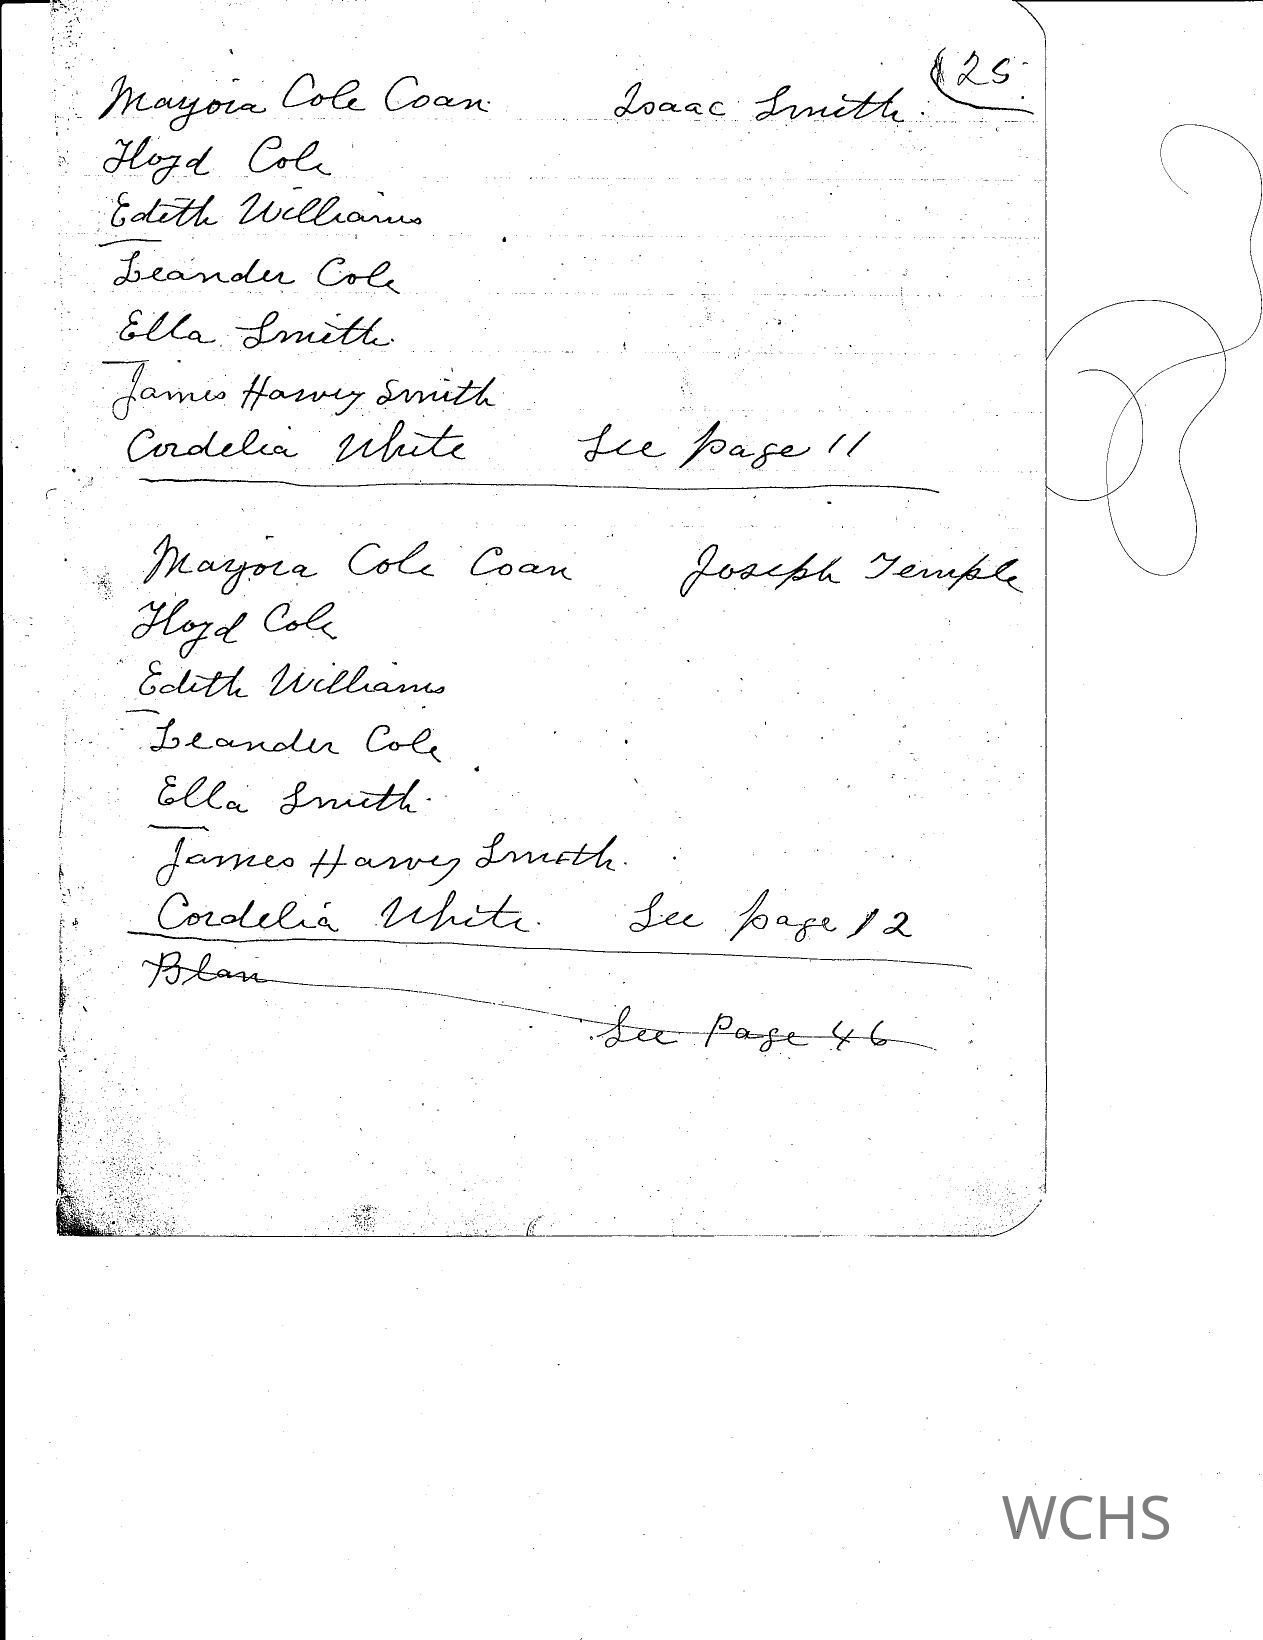 25
Marjora Cole Coan Isaac Smith.
Floyd Cole
Edith Williams
Leander Cole
Ella Smith.
James Harvey Smith
Cordelia White See page 11
Marjora Cole Coan Joseph Temple
Floyd Cole
Edith Williams
Leander Cole
Ella Smith.
James Harvey Smith.
Cordelia White. See page 12
Blan
See Page 46
WCHS